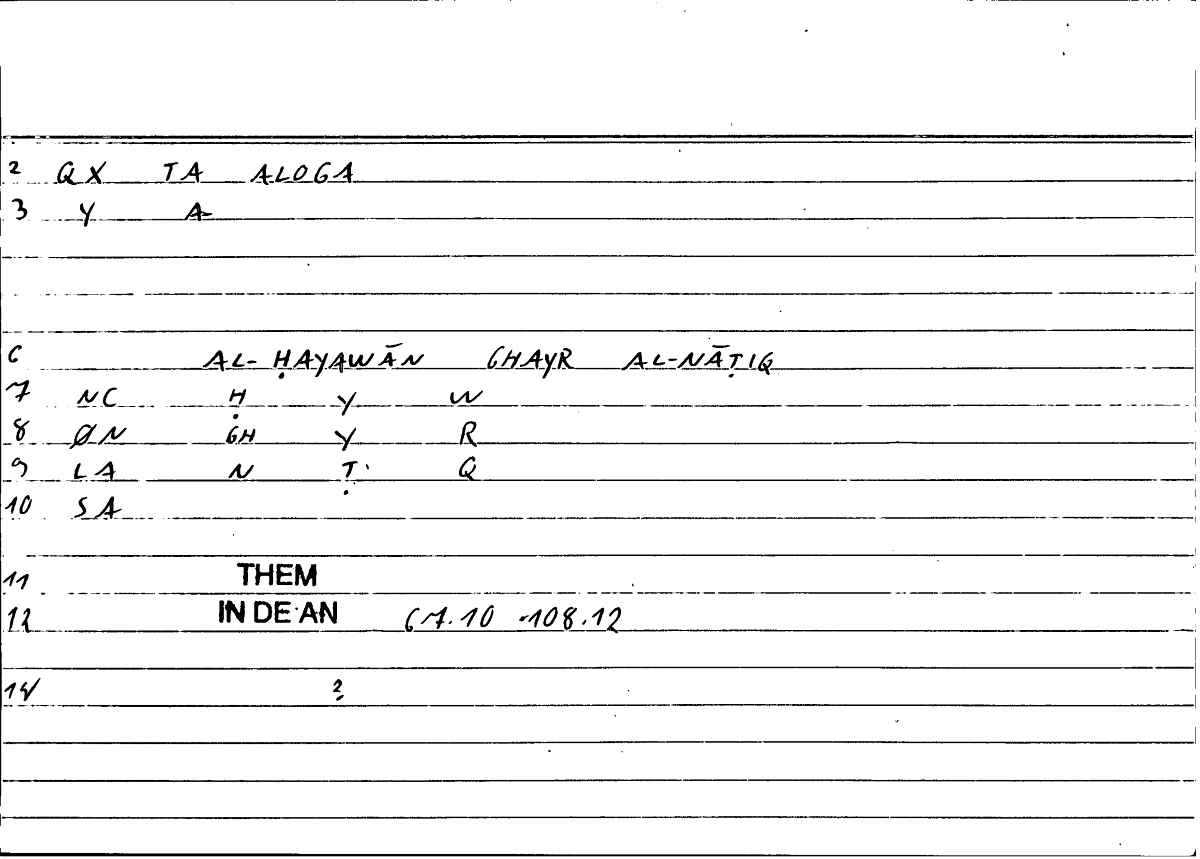 2 QX TA ALOGA
3 Y A
6 AL-ḤAYAWĀN GHAYR AL-NĀṬIQ
7 NC Ḥ Y W
8 ØN GH Y R
9 LA N Ṭ Q
10 SA
11 THEM
12 IN DE AN 67.10 -108.12
14 ?